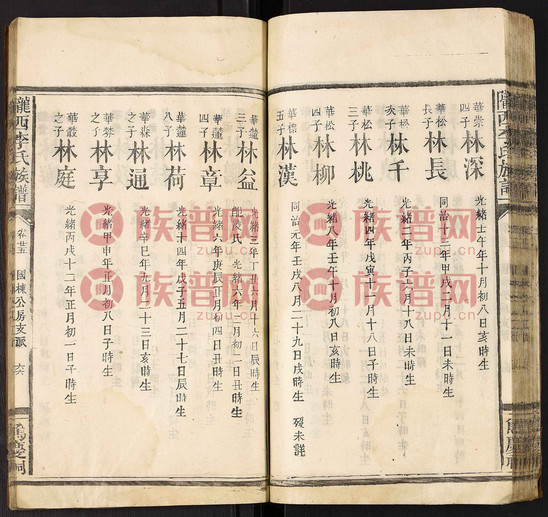 隴西李氏族譜
華榮四子 林深 光緒壬午年十月初八日亥時生
華松長子 林長 同治十三年甲戌二月十一日未時生
華松次子 林千 光緒二年丙子六月十八日未時生
華松三子 林桃 光緒四年戊寅十一月十八日子時生
華松四子 林柳 光緒八年壬午十月初八日亥時生
華標五子 林漢 同治元年壬戌八月二十九日戌時生 歿未詳
華蓮三子 林益 光緒三年丁丑六月十六日辰時生
配凌氏 光緒六年庚辰二月初二日丑時生
華蓮四子 林章 光緒六年庚辰正月初四日丑時生
華蓮八子 林荷 光緒十四年戊子五月二十七日辰時生
華森之子 林通 光緒辛巳年九月二十三日亥時生
華棼之子 林享 光緒甲申年正月初一日子時生
華叢之子 林庭 光緒丙戌十二年正月初一日子時生
隴西李氏族譜
卷廿五 國棟公房支派
篤慶祠
族譜网 zupu.cn
族譜网 zupu.cn
族譜网 zupu.cn
族譜网 zupu.cn